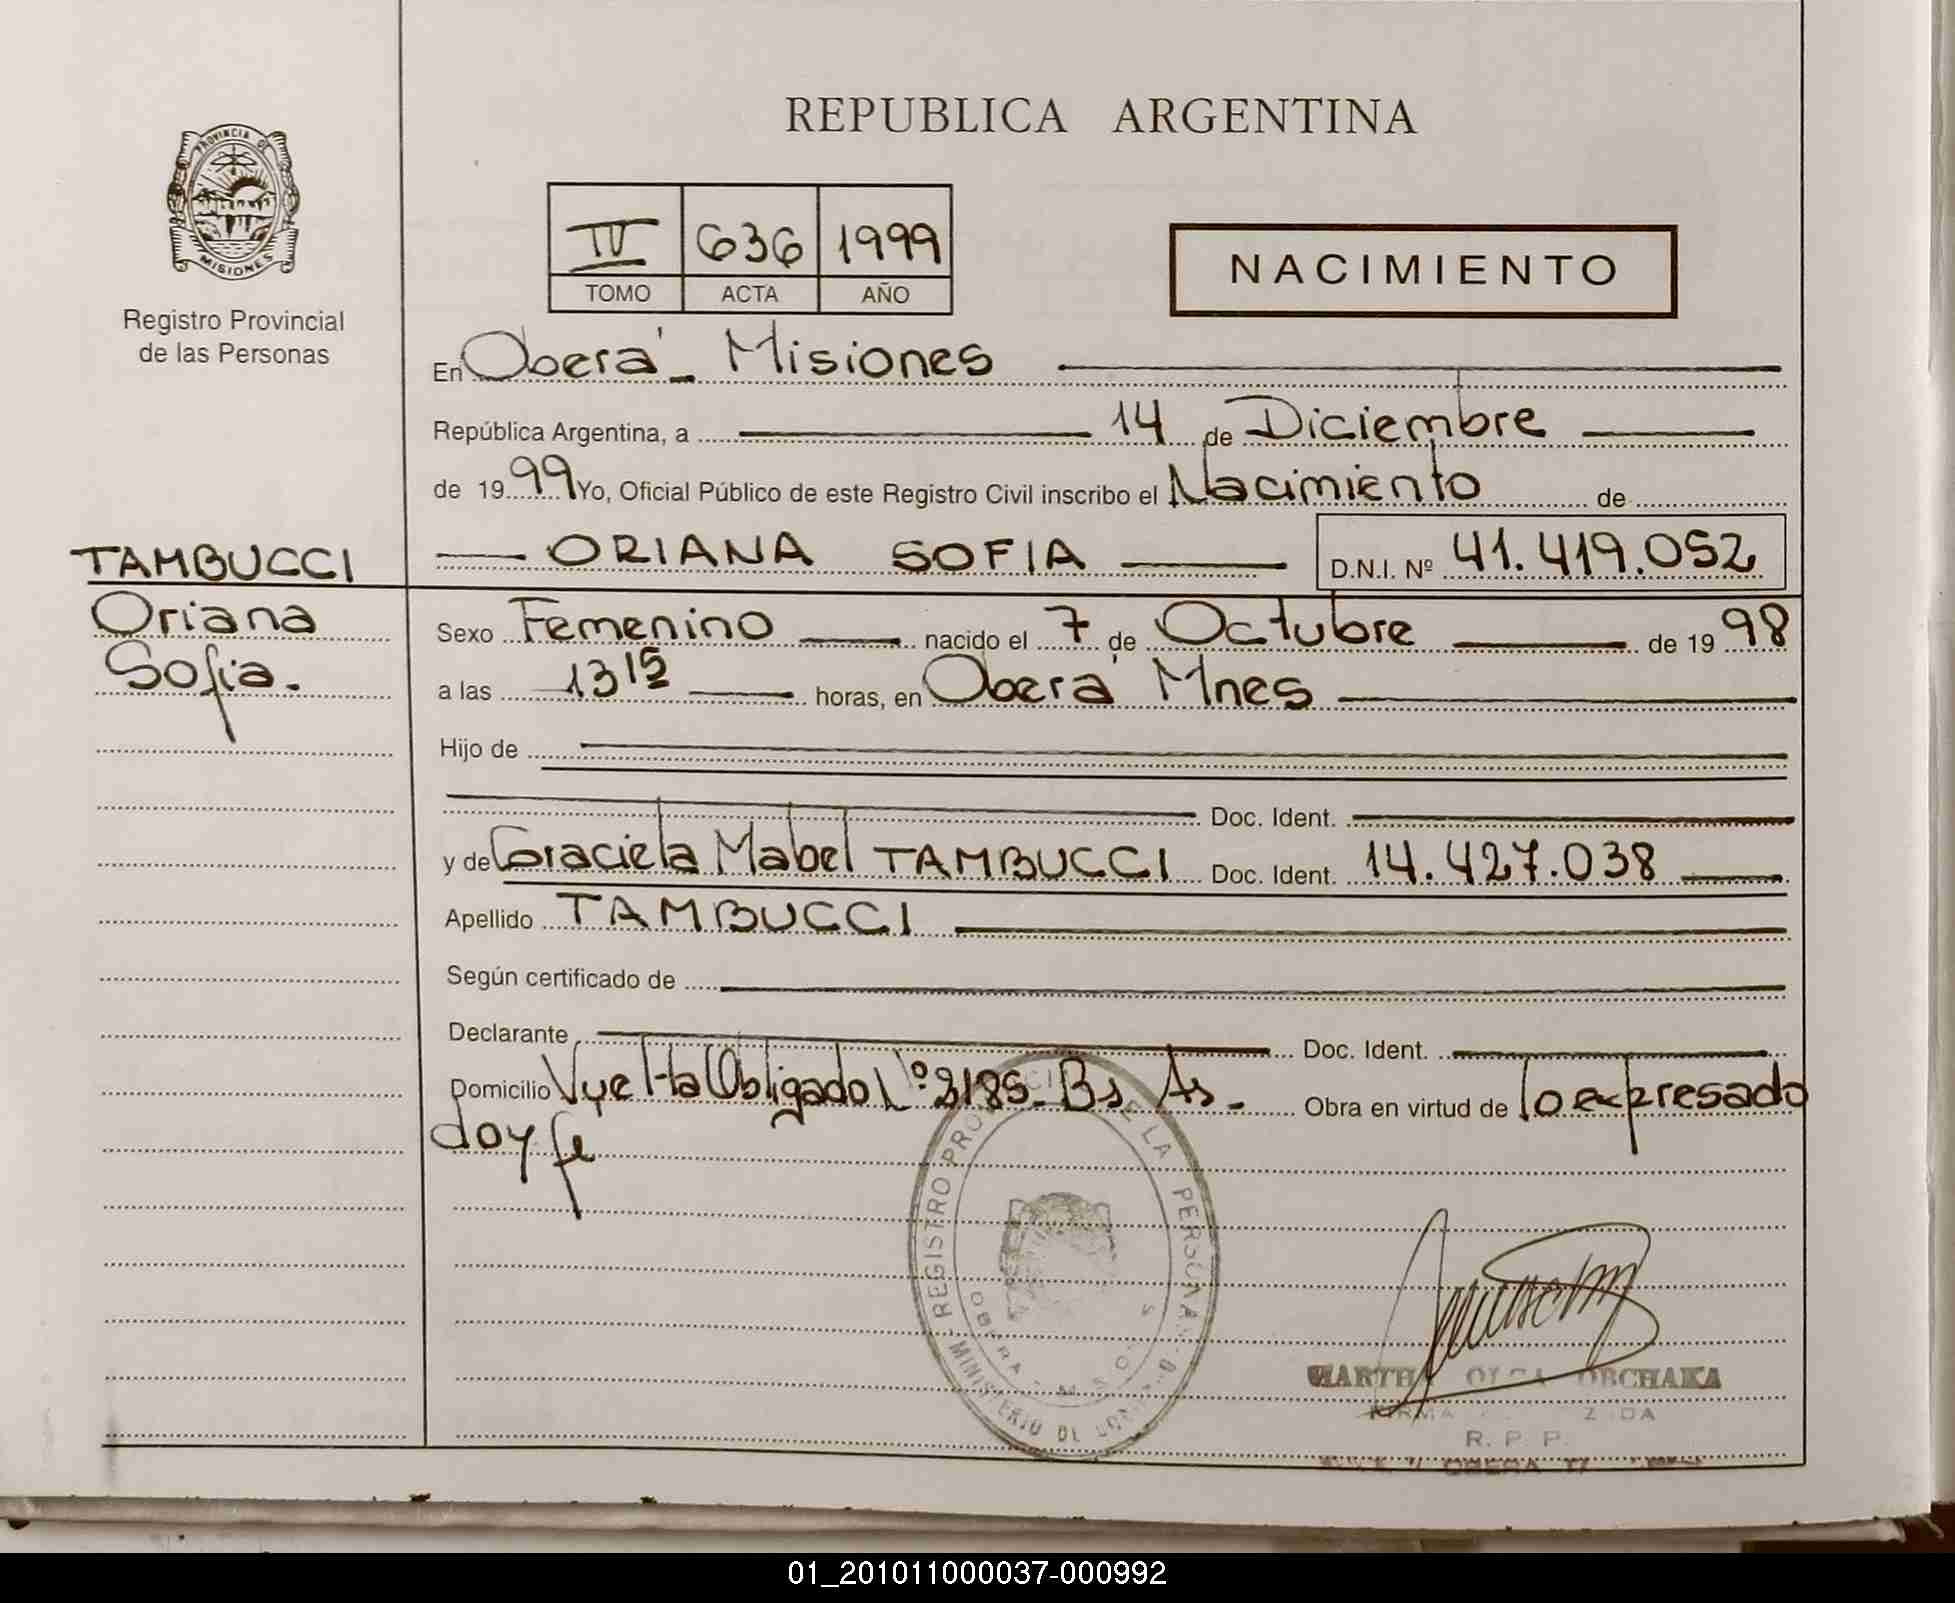 REPUBLICA ARGENTINA
PROVINCIA DE
MISIONES
Registro Provincial
de las Personas
IV 636 1999
TOMO ACTA AÑO
NACIMIENTO
En Oberá - Misiones
República Argentina, a 14 de Diciembre
de 1999 Yo, Oficial Público de este Registro Civil inscribo el Nacimiento de
ORIANA SOFIA D.N.I. Nº 41.419.052
TAMBUCCI
Oriana
Sofia.
Sexo Femenino nacido el 7 de Octubre de 1998
a las 13 15 horas, en Oberá Mnes
Hijo de
Doc. Ident.
y de Graciela Mabel TAMBUCCI Doc. Ident. 14.427.038
Apellido TAMBUCCI
Según certificado de
Declarante Doc. Ident.
Domicilio Vuelta Obligado Nº 3185 - Bs As - Obra en virtud de lo expresado
doy fe
REGISTRO PROVINCIAL DE LA PERSONAS
MINISTERIO DE
OBERA
MARTHA OLGA ORCHAKA
FIRMA
R. P. P.
OBERA
01_201011000037-000992